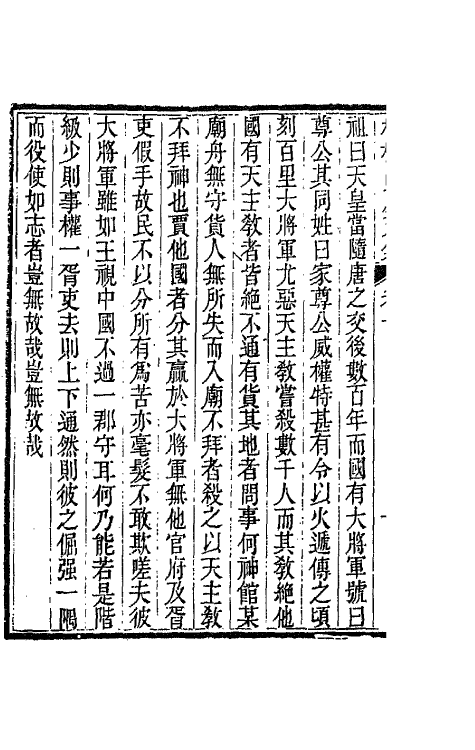 祖曰天皇當隨唐之交後數百年而國有大將軍號曰
尊公其同姓曰家尊公威權特甚有令以火遞傳之頃
刻百里大將軍尤惡天主敎嘗殺數千人而其敎絶他
國有天主敎者皆絶不通有貨其地者問事何神館某
廟舟無守貨人無所失而入廟不拜者殺之以天主敎
不拜神也賈他國者分其贏於大將軍無他官府及胥
吏假手故民不以分所有爲苦亦毫髮不敢欺嗟夫彼
大將軍雖如王視中國不過一郡守耳何乃能若是階
級少則事權一胥吏去則上下通然則彼之倔强一隅
而役使如志者豈無故哉豈無故哉